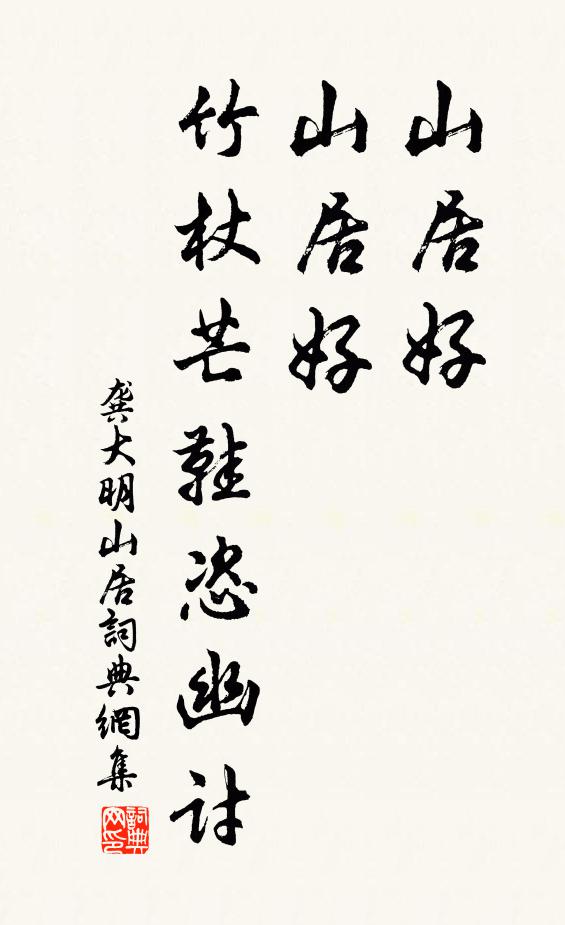 山居好
山居好
竹杖芒鞋恣幽討
龚大明山居詞典網集
詞典网印